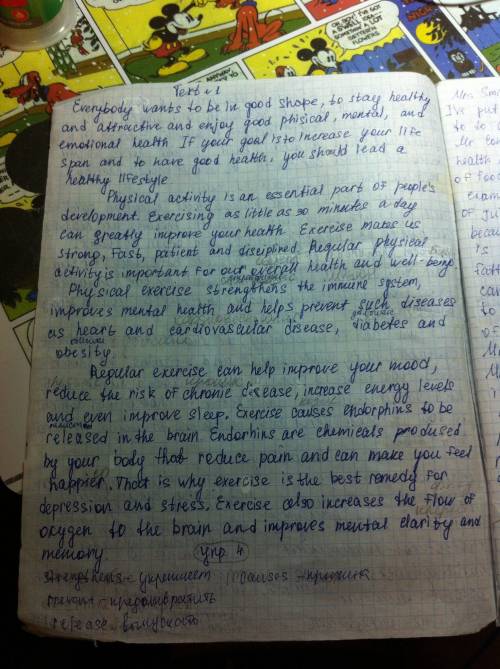 Text 1
Everybody wants to be in good shape, to stay healthy
and attractive and enjoy good phisical, mental, and
emotional health If your goal is to increase your life
span and to have good health, you should lead a
healthy lifestyle
Physical activity is an essential part of people's
development. Exercising as little as 30 minutes a day
can greatly improve your health Exercise makes us
strong, fast, patient and disciplined. Regular physical
activity is important for our overall health and well-being.
Physical exercise strengthens the immune system,
improves mental health and helps prevent such diseases
as heart and cardiovascular disease, diabetes and
obesity.
Regular exercise can help improve your mood,
reduce the risk of chronic disease, increase energy levels
and even improve sleep. Exercise causes endorphins to be
released in the brain Endorhins are chemicals prodused
by your body that reduce pain and can make you feel
happier. That is why exercise is the best remedy for
depression and stress. Exercise also increases the flow of
oxygen to the brain and improves mental clarity and
memory.
упр. 4
strengthens - укрепляет
causes -
prevent - предотвратить
release
Mrs Smi
I've put
to to
health
of foo
exam
of
beca
is
fatt
can
to
of